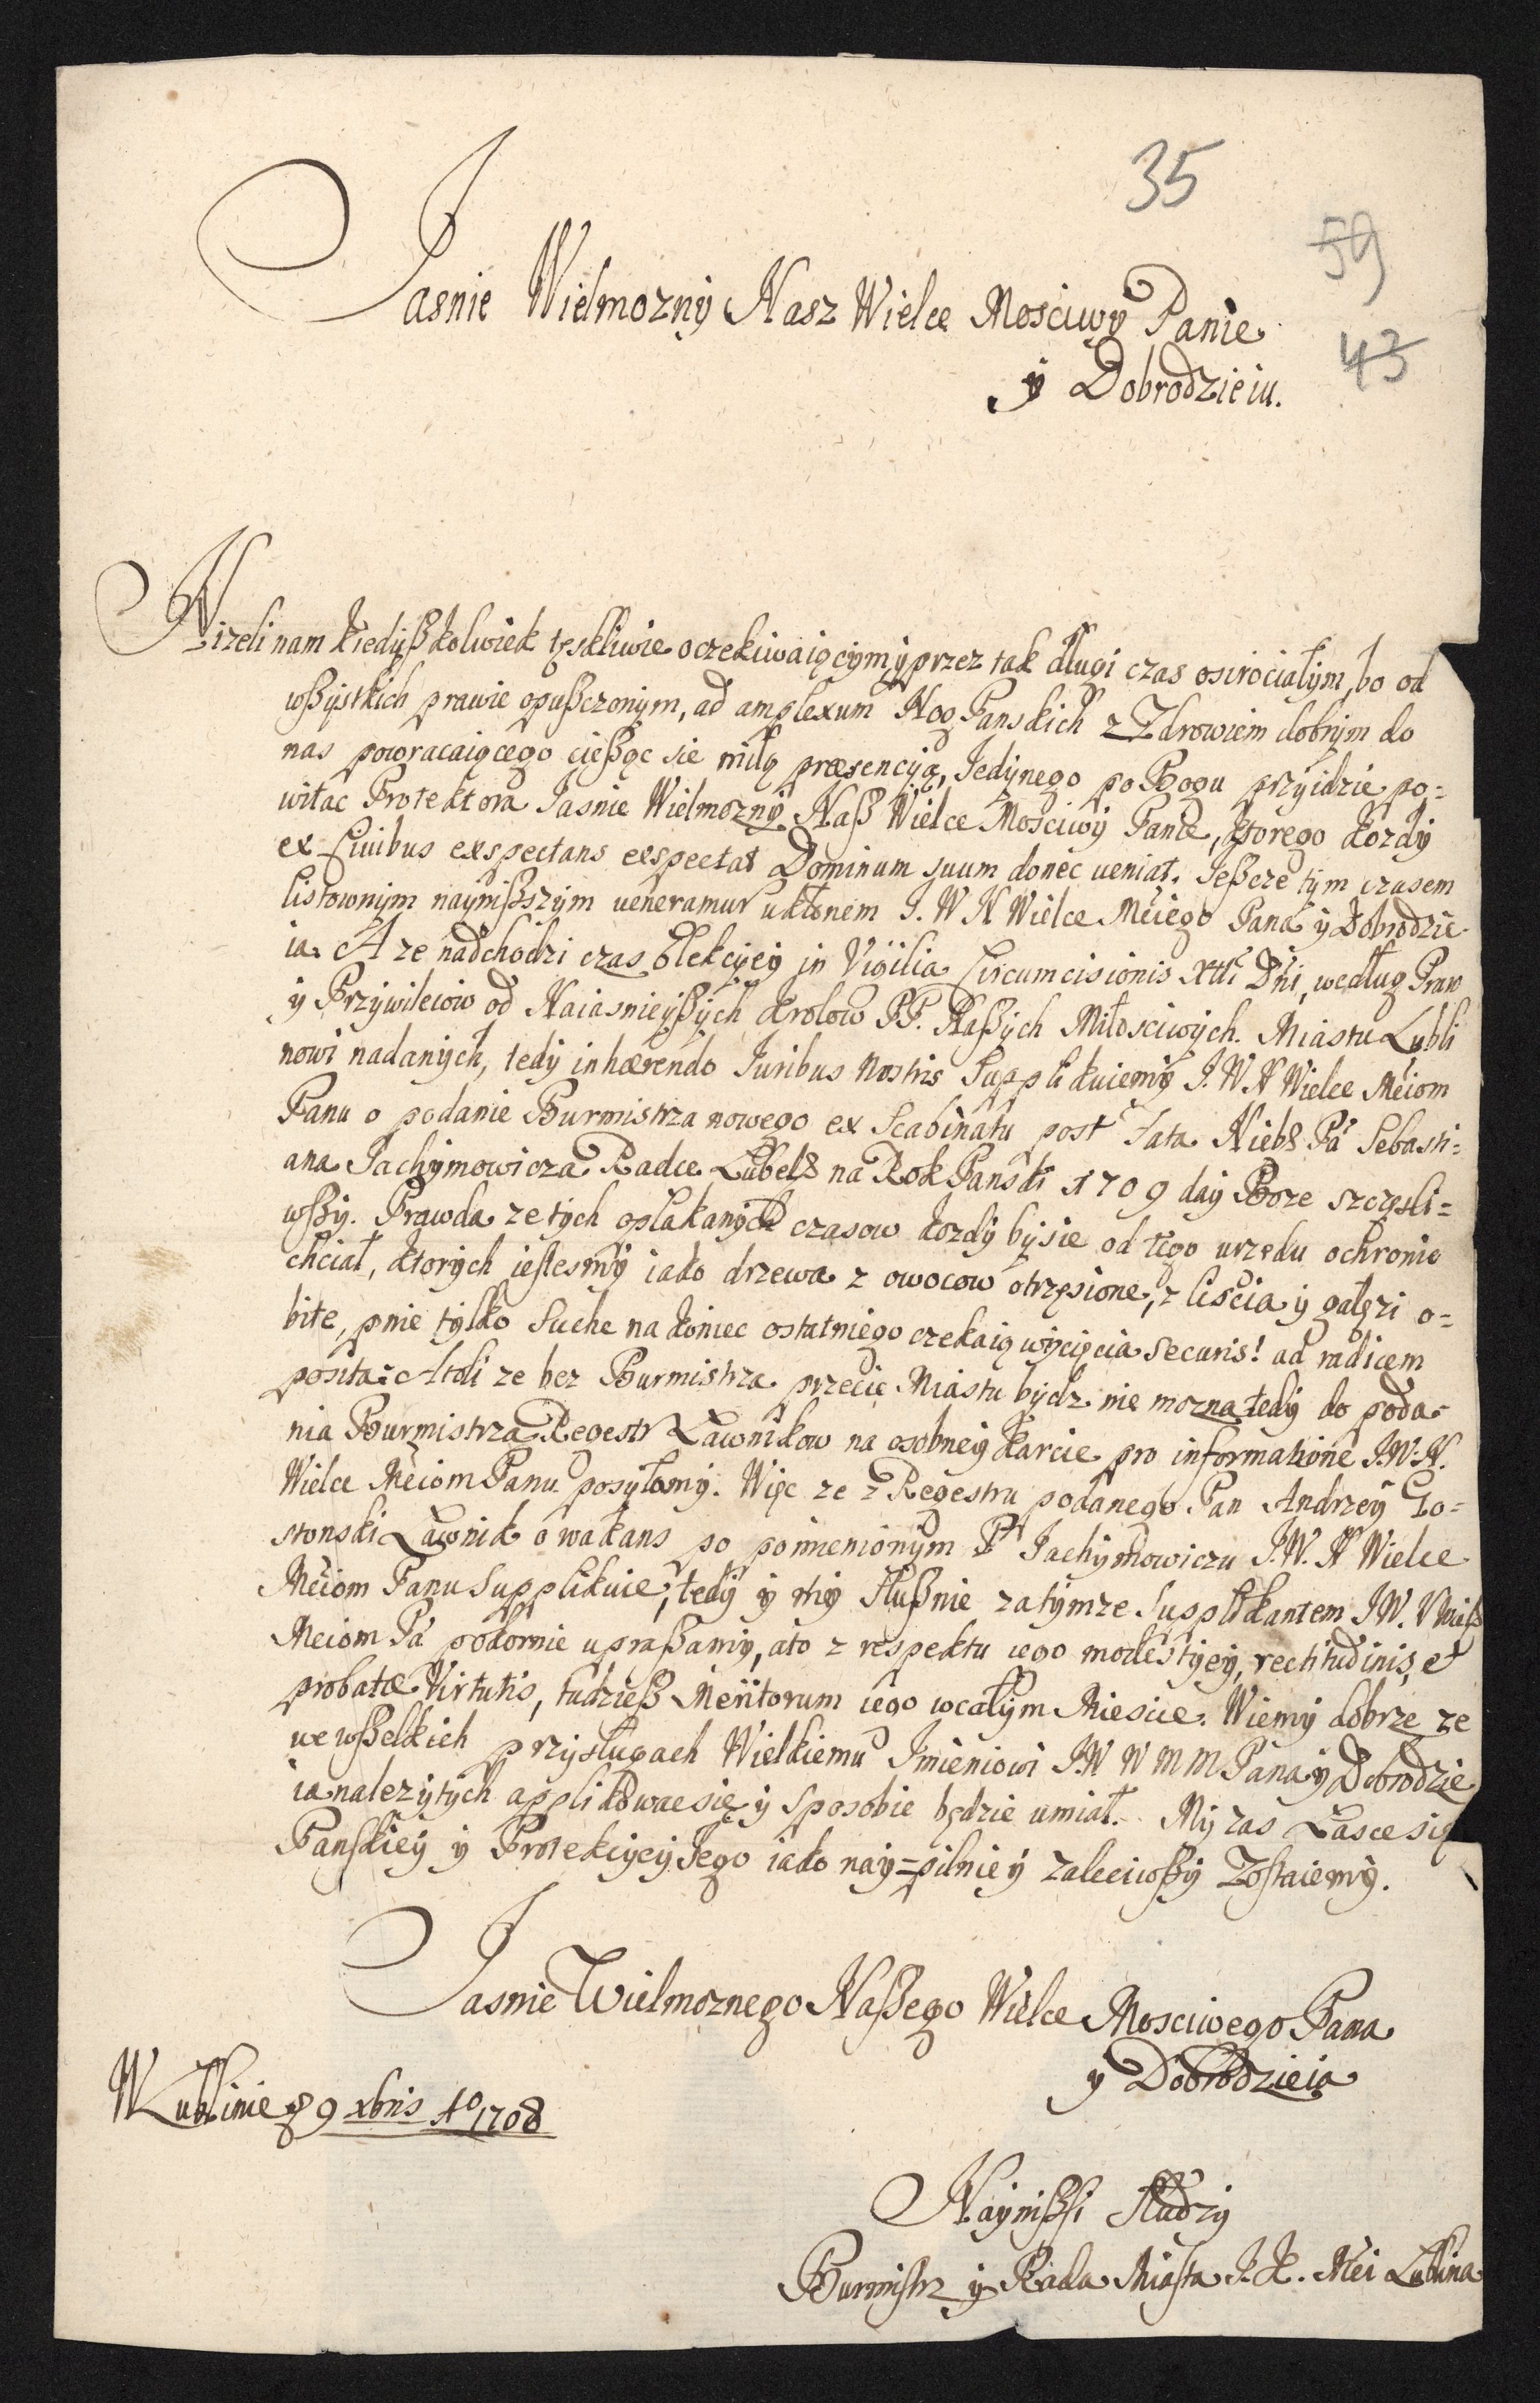 35
59
43
Jasnie Wielmozny Nasz Wielce Mosciwy Panie
y Dobrodzieiu.
Nizeli nam kiedyßkolwiek tęskliwie oczekiwaiącymy przez tak długi czas osirociałym, bo od
wßystkich prawie opußczonym, ad amplexum Nog Panskich z Zdrowiem dobrym do
nas powracaiącego cießąc sie miłą præsencyią, Jedynego po Bogu przyidzie po=
witac Protektora Jasnie Wielmozny Naß Wielce Mosciwy Panie, ktorego kozdy
ex Ciuibus exspectans exspectat Dominum suum donec ueniat. Jeßcze tym czasem
listownym naynißszym ueneramur ukłonem J. W N Wielce Mciego Pana y Dobrodzie
ia. A ze nadchodzi czas Elekcyey in Vigilia Circumcisionis Xti Dni, według Praw
y Przywileiow od Naiasnieyßych Krolow PP. Naßych Miłosciwych. Miastu Lubli
nowi nadanych, tedy inhærendo Juribus Nostris Supplikuiemy J. W N Wielce Mciom
Panu o podanie Burmistrza nowego ex Scabinatu post Fata Niebs Pa Sebasti=
ana Jachymowicza Radce Lubels na Rok Panski 1709 day Boze szczęsli=
wßy. Prawda ze tych opłakanych czasow kozdy by sie od tego urzędu ochronic
chciał, ktorych iestesmy iako drzewa z owocow otrzęsione, z liscia y gałęzi o=
bite, pnie tylko Suche na koniec ostatniego czekaią wycięcia securis! ad radicem
posita: Atoli ze bez Burmistrza przecie Miastu bydz nie mozna tedy do poda=
nia Burmistrza Regestr Ławnikow na osobney karcie pro informatione J. W. N.
Wielce Mciom Panu posyłamy. Więc ze z Regestru podanego Pan Andrzey Go=
stonski Ławnik o wakans po pomienionym P Jachymowiczu J. W. N Wielce
Mciom Panu Supplikuie, tedy y my słußnie za tymze Supplikantem JW.
Mciom Pa pokornie upraßamy, ato z respektu iego modestyey, rectitudinis, et
probatæ Virtutis, tudzieß Meritorum iego wcałym Miescie. Wiemy dobrze ze
we wßelkich przysługach Wielkiemu Jmieniowi JW W M M Pana y Dobrodzie
ia nalezytych applikowac się y sposobic będzie umiał. My zas Łasce się
Panskiey y Protekcyey Jego iako nay=pilniey zaleciwßy Zostaiemy.
Jasnie Wielmoznego Naßego Wielce Mosciwego Pana
y Dobrodzieia
W Lublinie 9 xbris Ao 1708
Naynißsi Słudzy
Burmistrz y Rada Miasta J. K. Mci Lublina